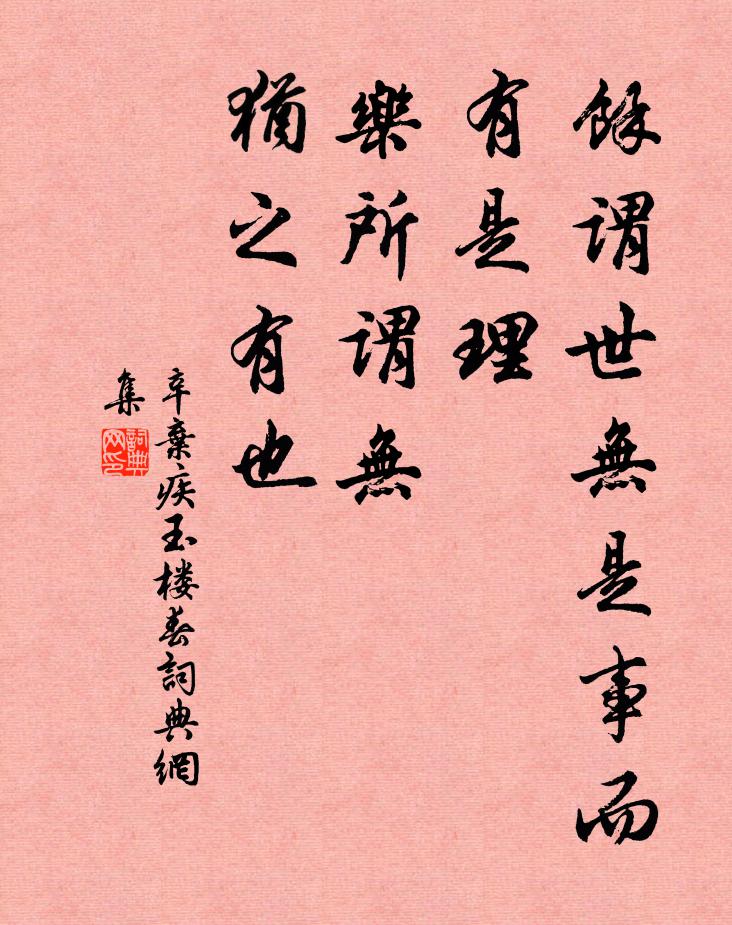 餘謂世無是事而
有是理
樂所謂無
猶之有也
辛棄疾玉楼春詞典網
集
詞典
网印